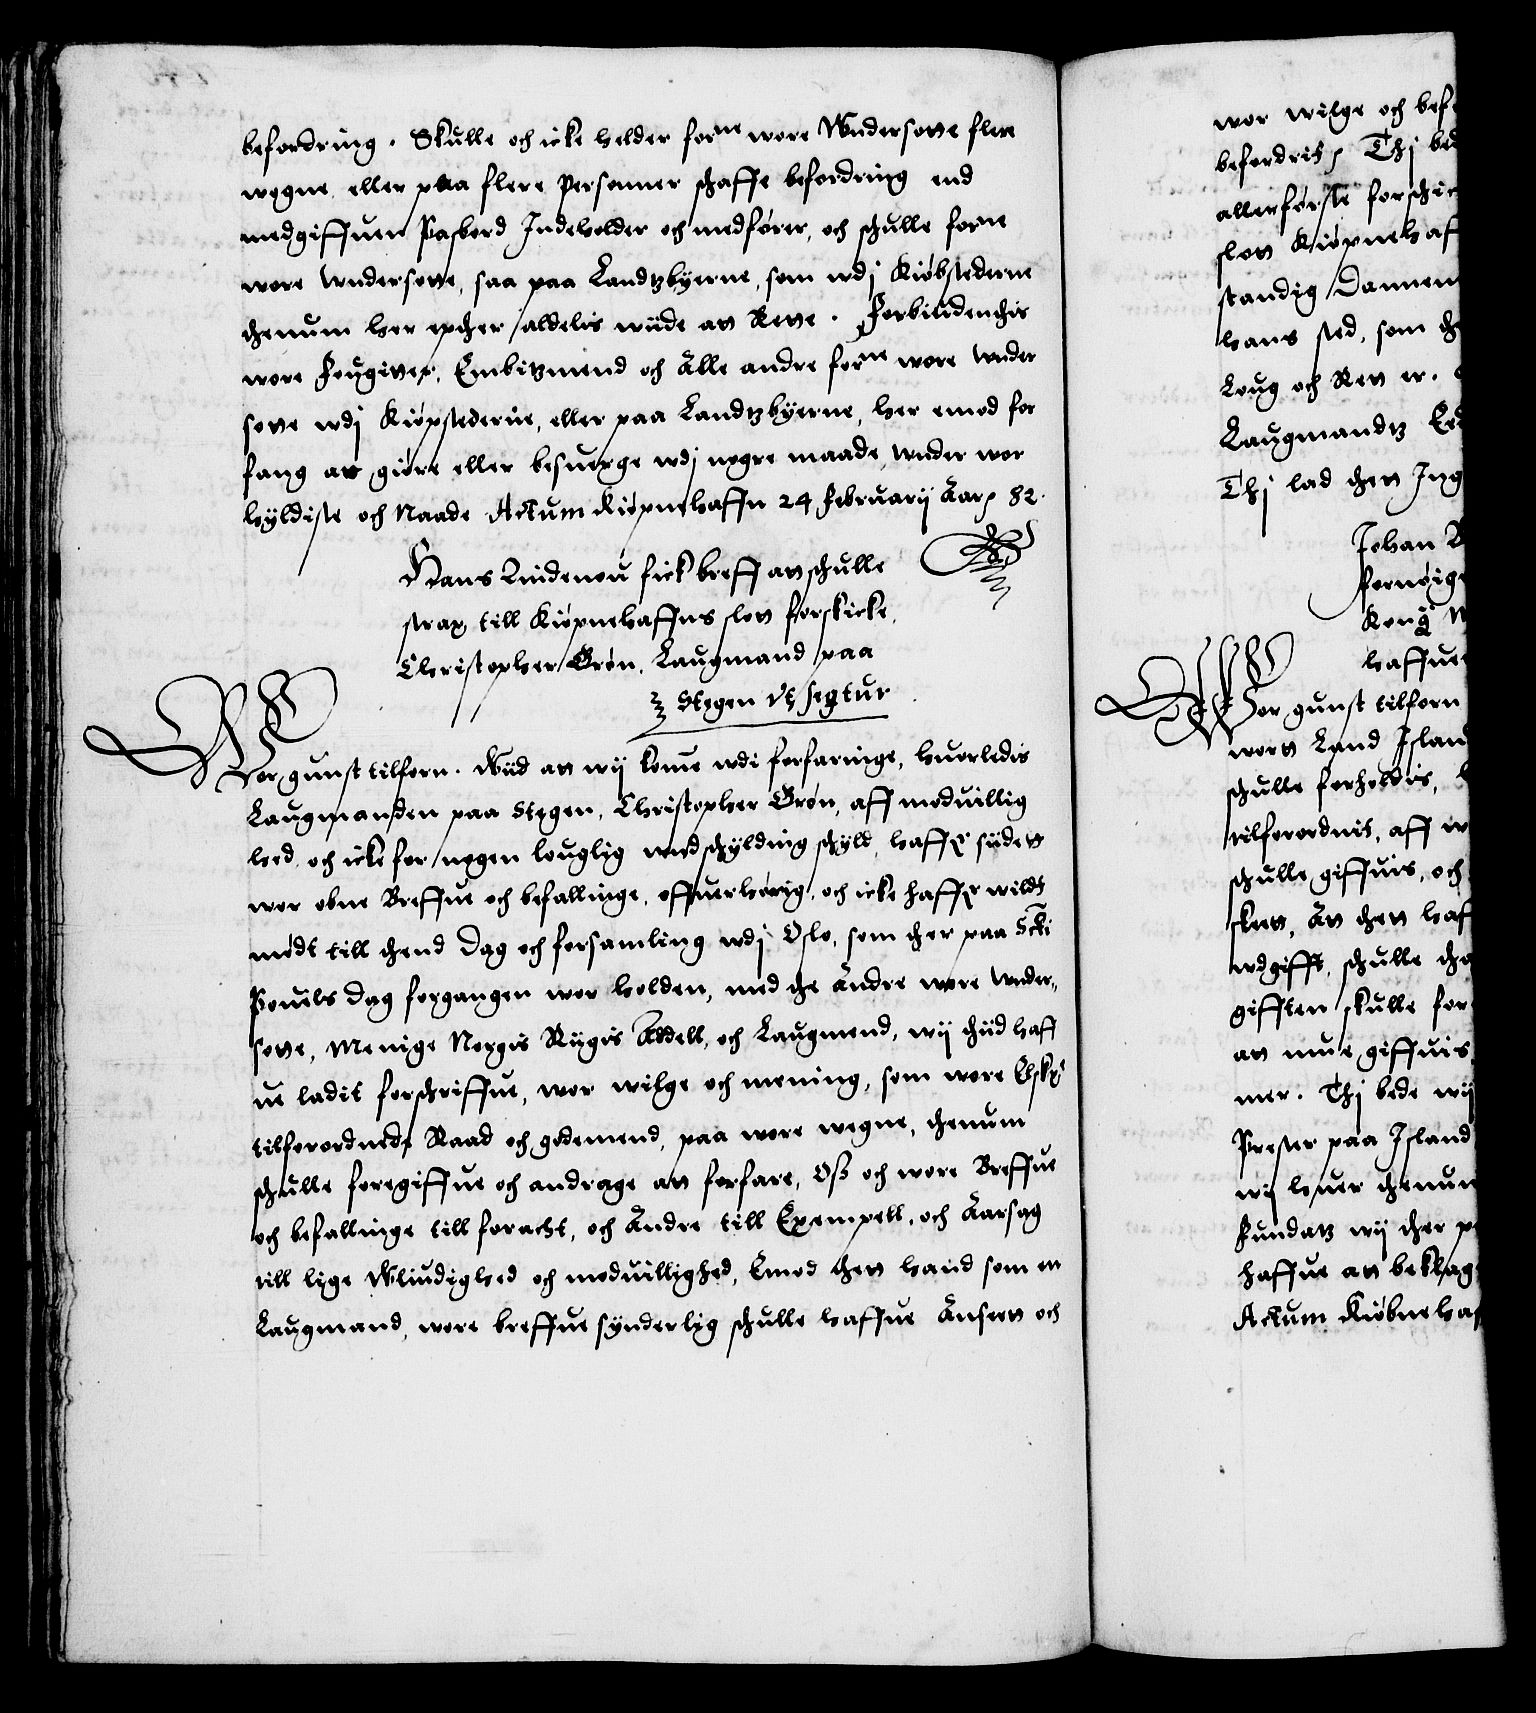 befordring. Skulle och icke helder forne wore Wndersotte flere
wegne, eller paa flere Personner schaffe befordring end
medgiffuen Pasbord Indeholder och medfører, och schulle forne
wore wndersotte, saa paa Landtzbyerne, som wdj Kiøbstederne
thenum her epther aldelis wiide att Rette. Forbiudendhis
wore Fougitter, Embitzmend och Alle andre forne wore wnder
sotte wdj Kiøpstederne, eller paa Landtzbyerne, her emod for
fang att giøre eller besuerge wdj nogre maade, wnder wor
hyldiste och Naade Actum Kiøpnehaffn 24 Februarij Aar 82.
Hans Lindenou fick breff att schulle
strax till Kiøpnehaffns slott forskicke,
Christopher Grøn, Laugmand paa
Stegen Vt seqtur
Wor gunst tilforn. Wiid att wij komme wdi forfaringe, huorledis
Laugmanden paa Stegen, Christopher Grøn, aff moduillig
hed, och icke for nogen louglig wndschylding schyld, haffr siidett
wor obne Breffue och befallinge, offuerhørig, och icke haffr wildt
mødt till thend Dag och forsamling wdj Oslo, som ther paa Scti
Pouils dag forgangen wor holden, med the Andre wore wnder,,
sotte, Menige Norgis Riigis Addell, och Laugmend, wij thiid haff
ue ladit forschriffue, wor wilge och mening, som wore Elskr
tilforordnede Raad och godemend, paa wore wegne, thenum
schulle foregiffue och andrage att forfare, Oss och wore Breffue
och befallinge till foracht, och Andre till Exempell, och Aarsag
till lige Wliudighed och moduillighed, Emod thett haand som en
Laugmand, wore breffue synderlig schulle haffue Anseett och
wor wilge och bef
befordrit, Thj bed
allerførste forschic
slott Kiøpnehaf
standig Dannem
hans sted, som th
Loug och Rett er.
Laugmandtz Eed
Thj lad thett Ing
Johan B
fornøige
Kong M
haffue
Wor gunst tilforn
wortt Land Island
schulle forholdis,
tilforordnit, aff w
schulle giffuis, och
skeett, An thett haf
wdgifft, schulle tha
gifften skulle for
att mue giffuis
mer. Thj bede wij
Prester paa Island
wij huer thenum
Fundatz wij ther p
haffue att beklag
Actum Kiøbnehaf